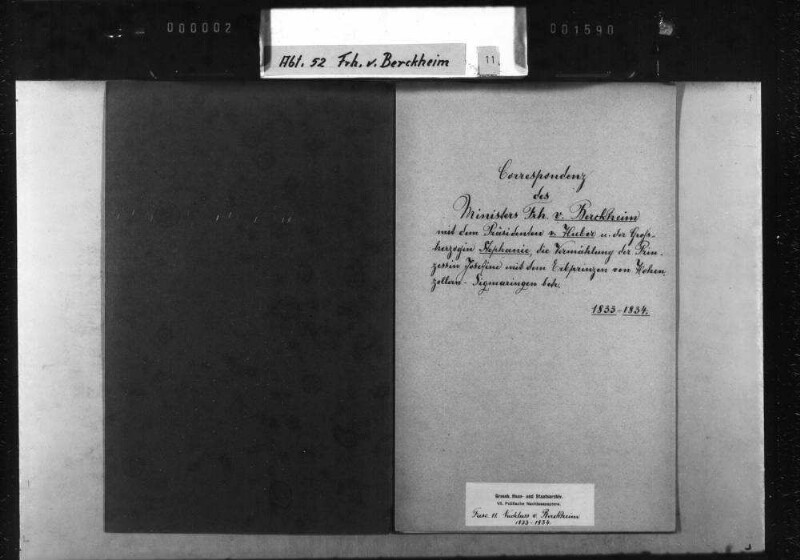 000002
001590
Abt. 52 Frh. v. Berckheim
11
Correspondenz
des
Ministers Frh. v. Berckheim
mit dem Präsidenten v. Huber u. der Groß-
herzogin Stephanie, die Vermählung der Prin-
zessin Josefine mit dem Erbprinzen von Hohen
zollern-Sigmaringen betr.
1833-1834.
Grossh. Haus- und Staatsarchiv.
Fasc. 11. Nachlass v. Berckheim
1833-1834.